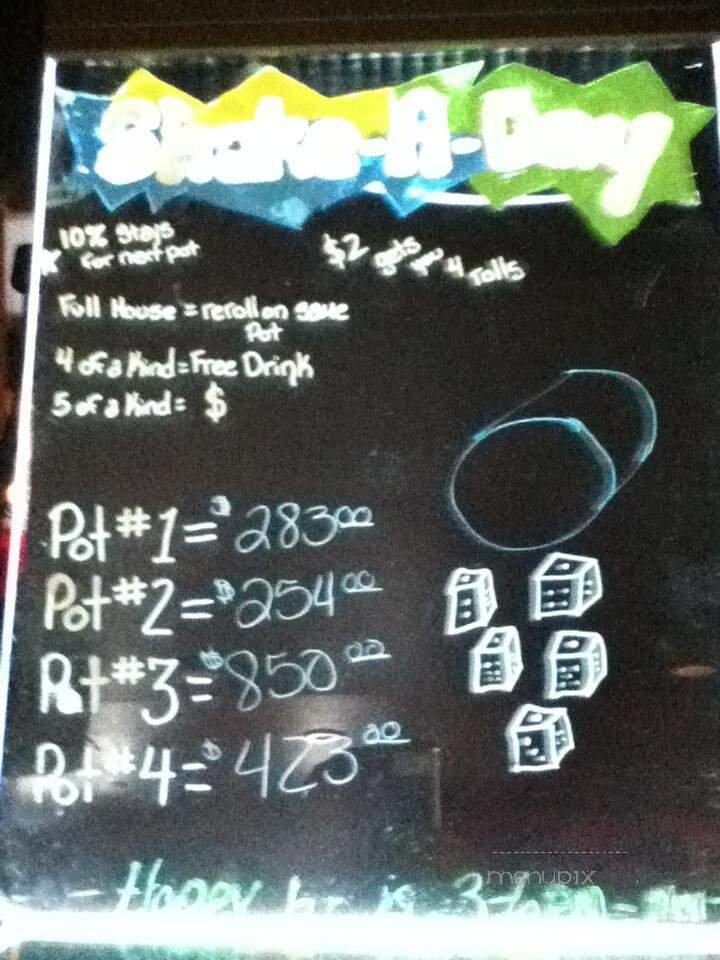 Shake-A-Day
10% Stays
for next pot
$2 gets you 4 rolls
Full House = reroll on same
Pot
4 of a Kind = Free Drink
5 of a Kind = $
Pot #1 = $283.00
Pot #2 = $254.00
Pot #3 = $850.00
Pot #4 = $423.00
menupix
- Happy hr is 3-6pm -